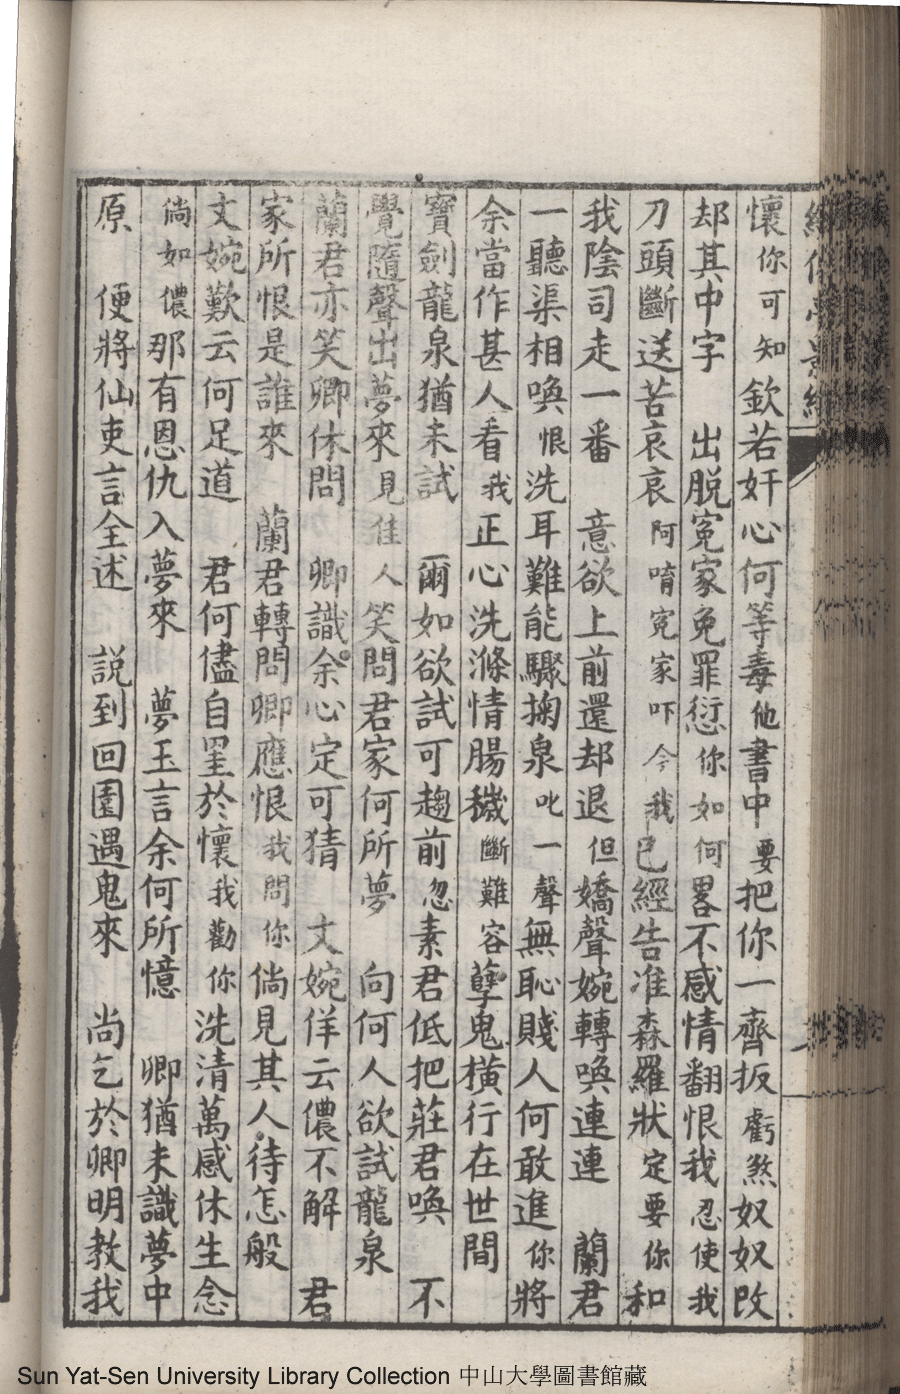 懷你可知欽若奸心何等毒他書中要把你一齊扳虧煞奴奴改
却其中字　出脱寃家免罪愆你如何畧不感情翻恨我忍使我
刀頭斷送苦哀哀阿唷寃家吓今我已經告准森羅狀定要你和
我陰司走一番　意欲上前還却退但嬌聲婉轉喚連連　蘭君
一聽渠相喚恨洗耳難能驟掬泉叱一聲無恥賤人何敢進你將
余當作甚人看我正心洗滌情腸穢斷難容孽鬼橫行在世間
寶劍龍泉猶未試　爾如欲試可趨前忽素君低把莊君喚　不
覺隨聲出夢來見佳人笑問君家何所夢　向何人欲試龍泉
蘭君亦笑卿休問　卿識余心定可猜　文婉佯云儂不解　君
家所恨是誰來　蘭君轉問卿應恨我問你倘見其人待怎般
文婉歎云何足道　君何儘自罣於懷我勸你洗清萬感休生念
倘如儂那有恩仇入夢來　夢玉言余何所憶　卿猶未識夢中
原　便將仙吏言全述　説到回園遇鬼來　尚乞於卿明教我
Sun Yat-Sen University Library Collection 中山大學圖書館藏